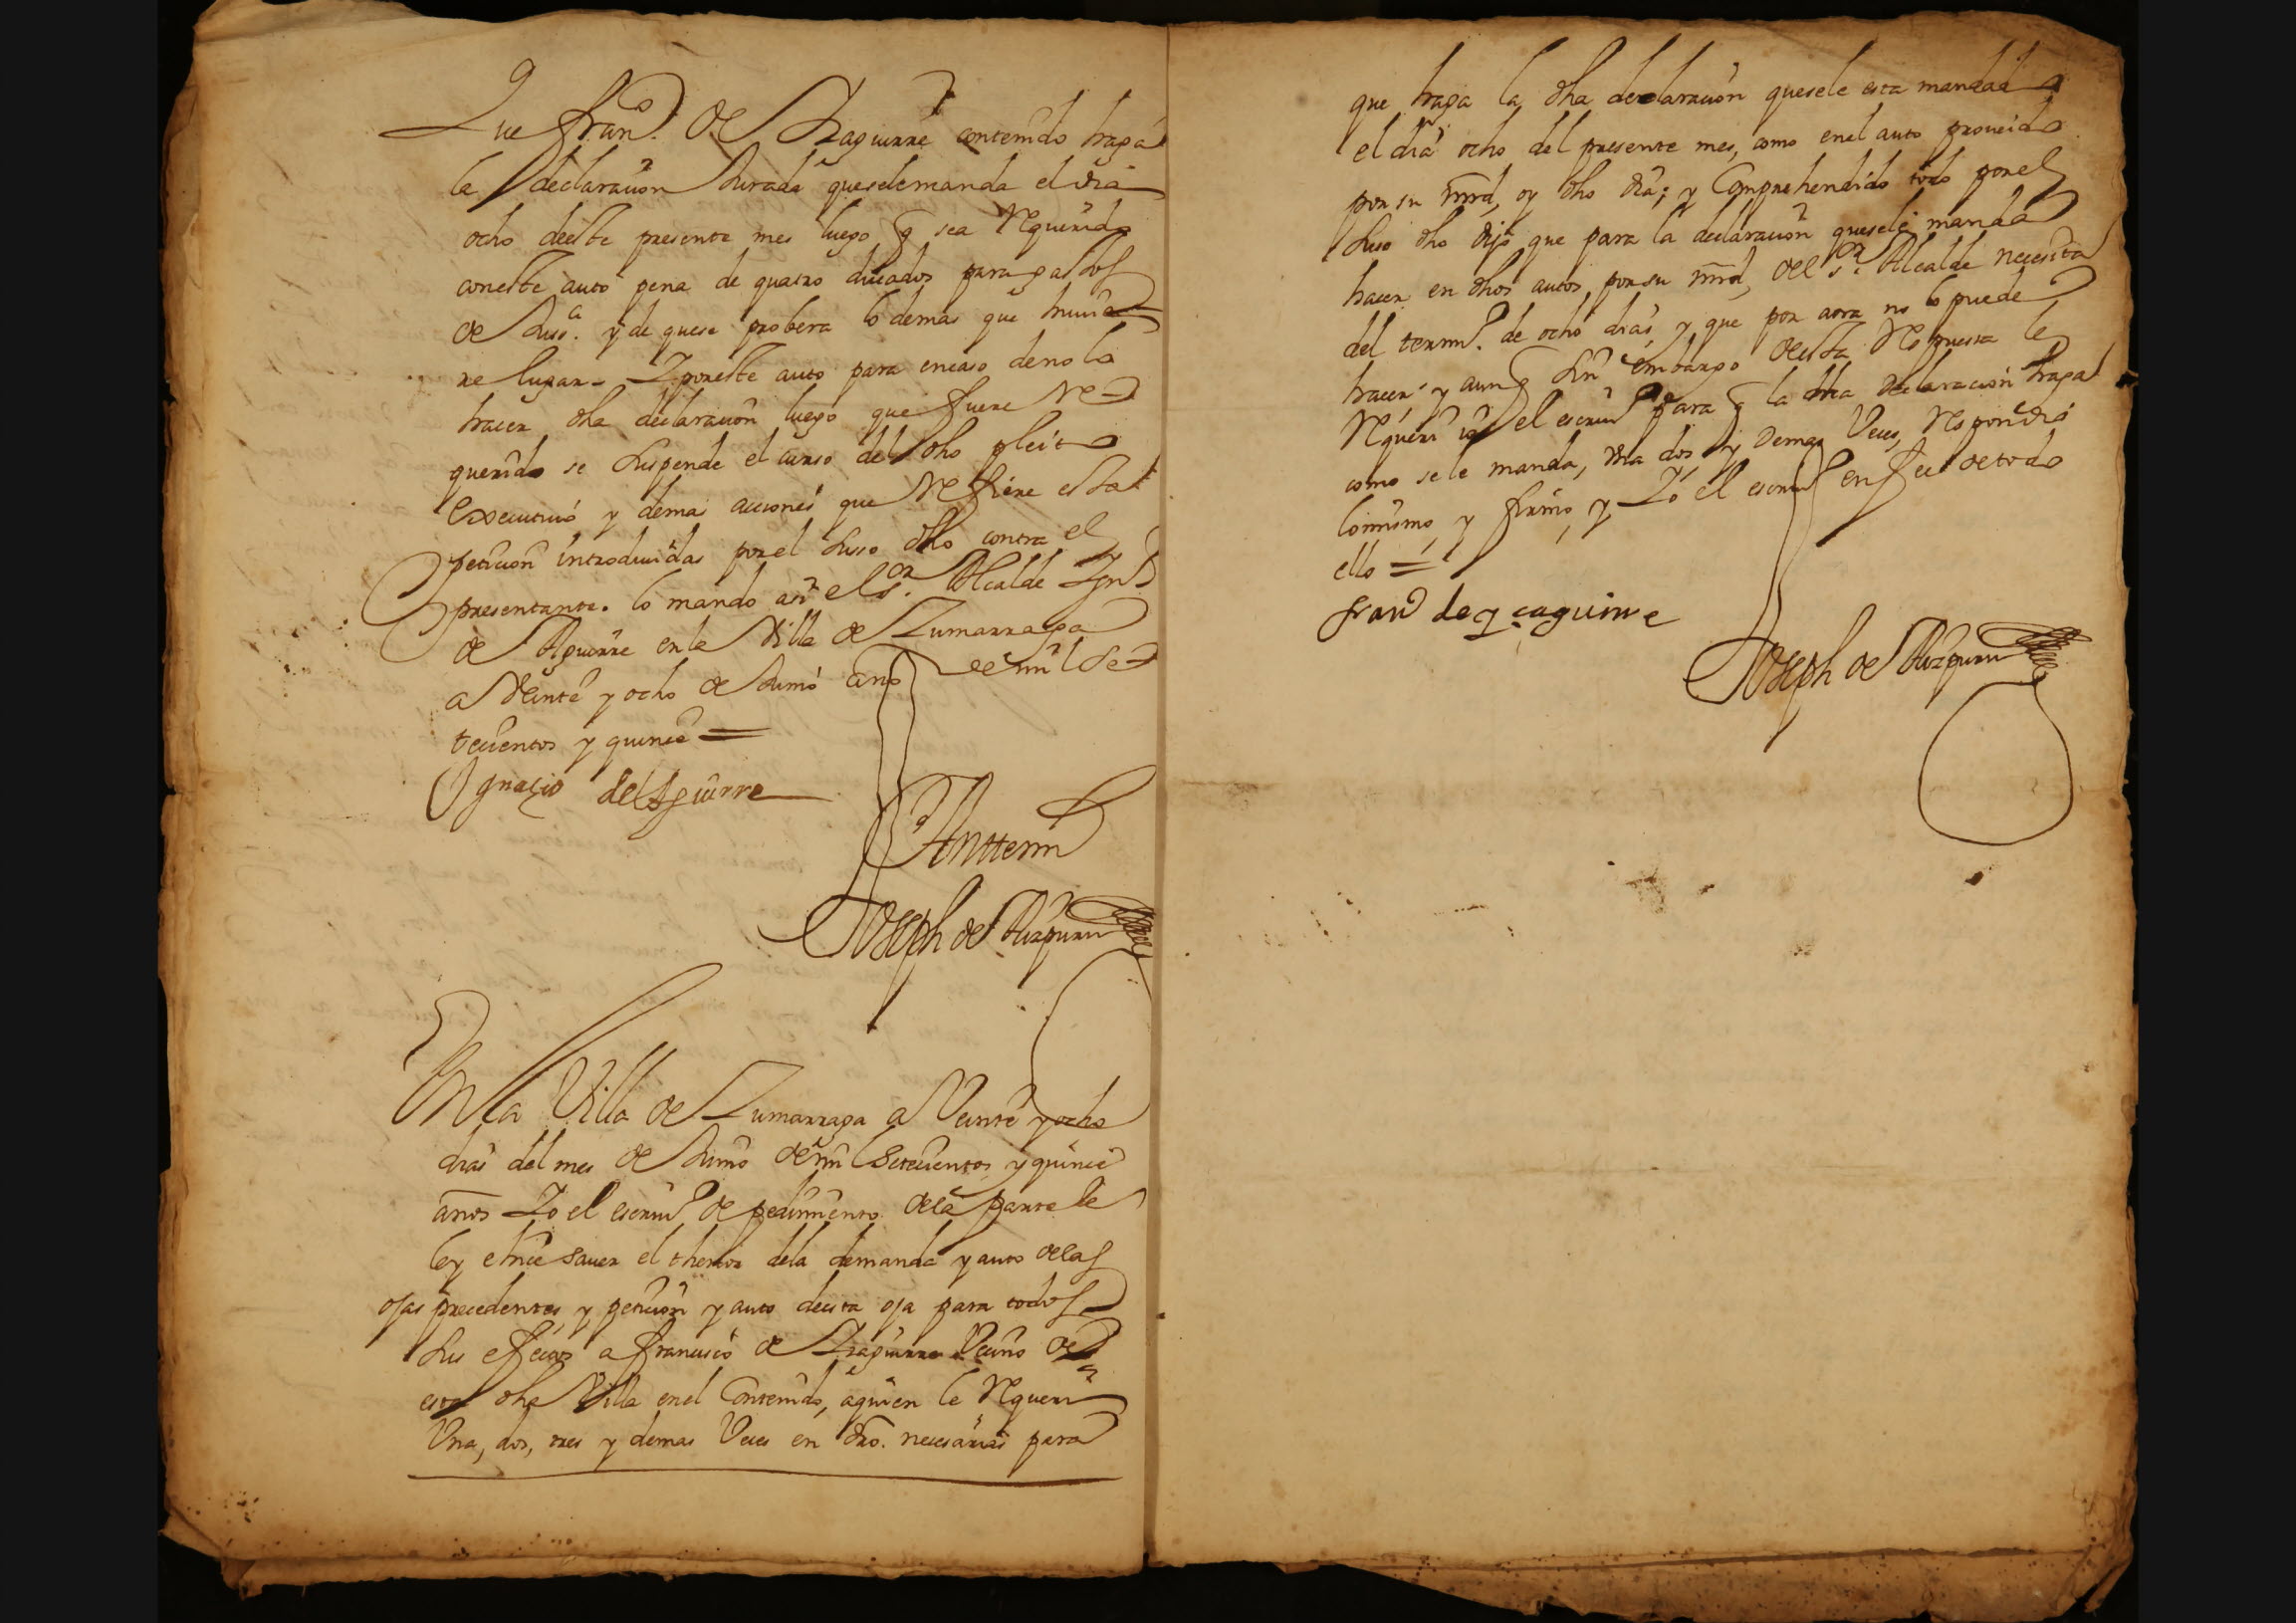 Que fran.co de Yzaguirre contenido haga
la declaracion Jurada queselemanda el dia
ocho deeste presente mes luego q sea Requerido
coneste auto pena de quatro ducados para gastos
de Jus.a y de quese probera lo demas que huvie
re lugar. Y poreste auto para encaso denolo
hacer dha declaracion luego que fuere Re
querido se suspende el curso del dho pleito
executivo y demas acciones que Refiere esta
peticion introducidas porel suso dho contra el
presentante. lo mando asi el s.or Alcalde Ygn.o
de Aguirre enla Villa de Zumarraga
a Veinte y ocho de Junio año de mil Se
tecientos y quince =
Ygnacio de Aguirre
Anttemi
Joseph de Aizpuru
En la Villa de Zumarraga a Veinte y ocho
dias del mes de Junio demil Setecientos y quince
años Yo el escriv.o de pedimiento dela parte le
ley e hice saver el thenor dela demanda y auto delas
ojas precedentes, y peticion y auto deesta oja para todos
sus efectos a francisco de Yzaguirre Vecino de
esta dha Villa enel Contenido, aquien le Requeri
Una, dos, tres y demas Veces en dro. necesarias para
que haga la dha declaracion quesele esta mandada
el dia ocho del presente mes, como enel auto proveido
por su mrd, oy dho dia; y Comprehendido todo porel
suso dho dijo que para la declaracion quesele manda
hacer en dhos autos por su mrd, del s.or Alcalde necesita
del termi.o de ocho dias, y que por aora no lo puede
hacer y aunq sin embargo desta Respuesta le
Requeri io el escriv.o para q la dha declaracion haga
como sele manda, una dos y demas Veces, Respondio
lomismo, y firmo, y Yo el escriv.o en fee de todo
ello =
fran.co de yçaguirre
Joseph de Aizpuru